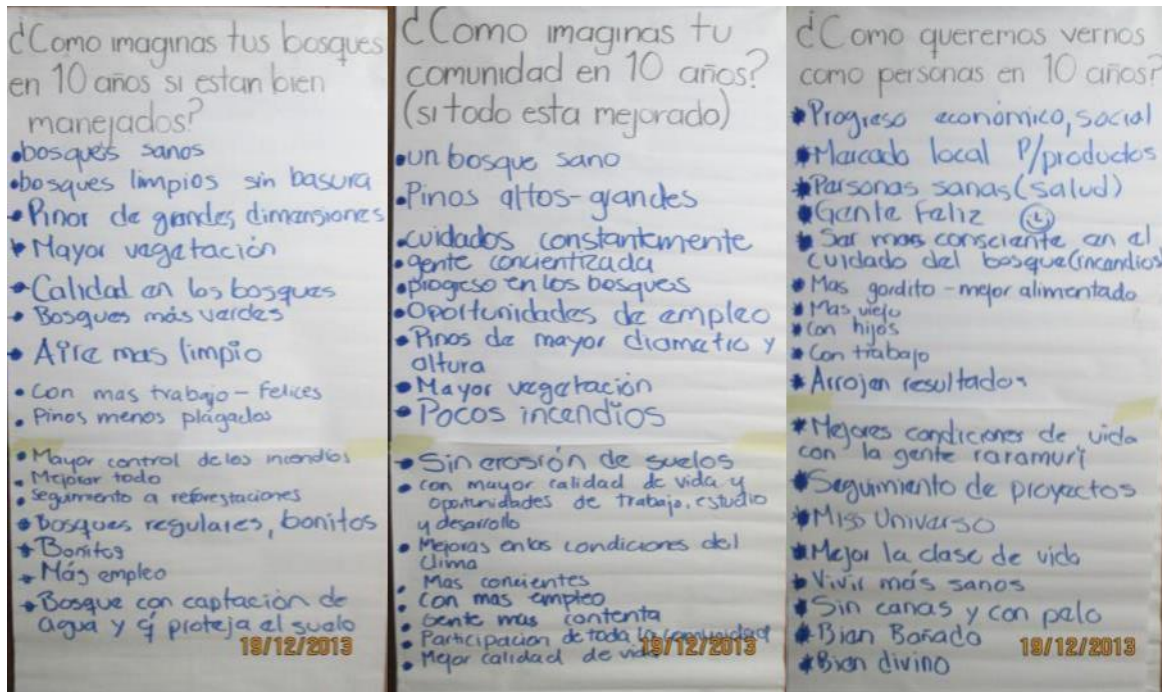 ¿Como imaginas tus bosques
en 10 años si estan bien
manejados?
•bosques sanos
•bosques limpios sin basura
•Pinor de grandes dimensiones
•Mayor vegetación
•Calidad en los bosques
•Bosques más verdes
•Aire mas limpio
•Con mas trabajo - Felices
•Pinos menos plagados
•Mayor control de los incendios
•Mejorar todo
•Seguimiento a reforestaciones
•Bosques regulares, bonitos
•Bonitos
•Más empleo
•Bosque con captación de
agua y q' proteja el suelo
19/12/2013
¿Como imaginas tu
comunidad en 10 años?
(si todo esta mejorado)
•un bosque sano
•Pinos altos-grandes
•cuidados constantemente
•gente concientizada
•progreso en los bosques
•Oportunidades de empleo
•Pinos de mayor diametro y
altura
•Mayor vegetación
•Pocos incendios
•Sin erosión de suelos
•con mayor calidad de vida y
oportunidades de trabajo, estudio
y desarrollo
•Mejoras en las condiciones del
clima
•Mas concientes
•Con mas empleo
•Gente mas contenta
•Participacion de toda la comunidad
•Mejor calidad de vida
19/12/2013
¿Como queremos vernos
como personas en 10 años?
*Progreso económico, social
*Marcado local P/productos
*Personas sanas (salud)
*Gente Feliz
*Ser mas consciente en el
cuidado del bosque (incendios)
*Mas gordito - mejor alimentado
*Mas viejo
*Con hijos
*Con trabajo
*Arrojen resultados
*Mejores condiciones de vida
con la gente raramuri
*Seguimiento de proyectos
*Miss Universo
*Mejor la clase de vida
*Vivir más sanos
*Sin canas y con pelo
*Bien Bañado
*Bien divino
19/12/2013